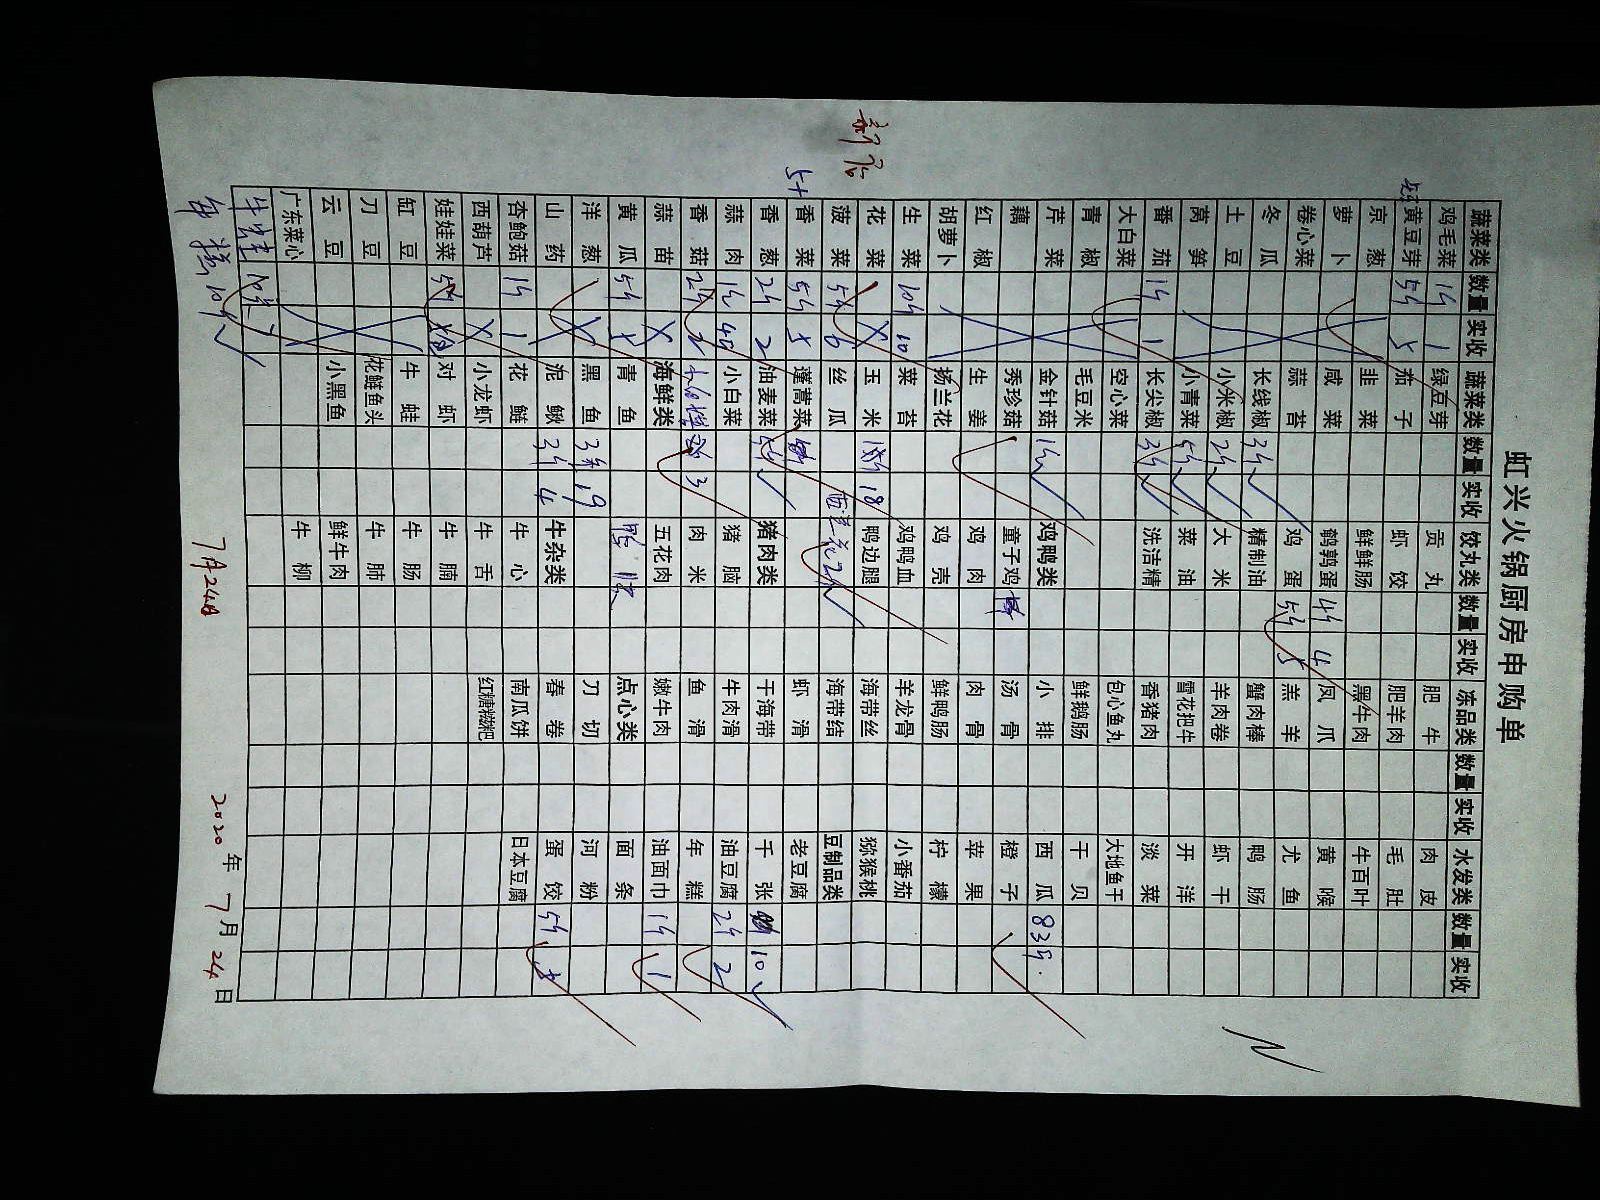 新店
虹兴火锅厨房申购单
蔬菜类 数量 实收 蔬菜类 数量 实收 饺丸类 数量 实收 冻品类 数量 实收 水发类 数量 实收
鸡毛菜 1斤 1 绿豆芽 贡丸 肥牛 肉皮
黄豆芽 5斤 5 茄子 虾饺 肥羊肉 毛肚
京葱 韭菜 鲜鲜肠 黑牛肉 牛百叶
萝卜 咸菜 鹌鹑蛋 4斤 4 凤爪 黄喉
卷心菜 蒜苔 鸡蛋 5斤 5 羔羊 尤鱼
冬瓜 长线椒 3斤 精制油 蟹肉棒 鸭肠
土豆 小米椒 2斤 大米 羊肉卷 虾干
莴笋 小青菜 5斤 菜油 雪花把牛 开洋
番茄 1斤 1 长尖椒 3斤 洗洁精 香猪肉 淡菜
大白菜 空心菜 包心鱼丸 大地鱼干
青椒 毛豆米 鲜鹅肠 干贝
芹菜 金针菇 1斤 鸡鸭类 小排 西瓜 83斤
藕 秀珍菇 童子鸡 汤骨 橙子
红椒 生姜 鸡肉 肉骨 苹果
胡萝卜 杨兰花 鸡壳 鲜鸭肠 柠檬
生菜 10斤 10 菜苔 鸡鸭血 羊龙骨 小番茄
花菜 玉米 18 鸭边腿 海带丝 猕猴桃
菠菜 5斤 6 丝瓜 西兰花2斤 海带结 豆制品类
香菜 5斤 5 蓬蒿菜 虾滑 老豆腐
香葱 2斤 2 油麦菜 5斤 猪肉类 干海带 千张 10
蒜肉 1斤 小白菜 猪脑 牛肉滑 油豆腐 2斤 2
香菇 2斤 2 3 肉米 鱼滑 年糕
蒜苗 海鲜类 五花肉 嫩牛肉 油面巾 1斤 1
黄瓜 5斤 青鱼 鸭 点心类 面条
洋葱 黑鱼 3条 19 刀切 河粉
山药 泥鳅 3斤 4 牛杂类 春卷 蛋饺 5斤
杏鲍菇 1斤 1 花鲢 牛心 南瓜饼 日本豆腐
西葫芦 小龙虾 牛舌 红糖糍粑
娃娃菜 5斤 对虾 牛腩
缸豆 牛蛙 牛肠
刀豆 花鲢鱼头 牛肺
云豆 小黑鱼 鲜牛肉
广东菜心 牛柳
牛蛙
7月24日
2020年7月24日